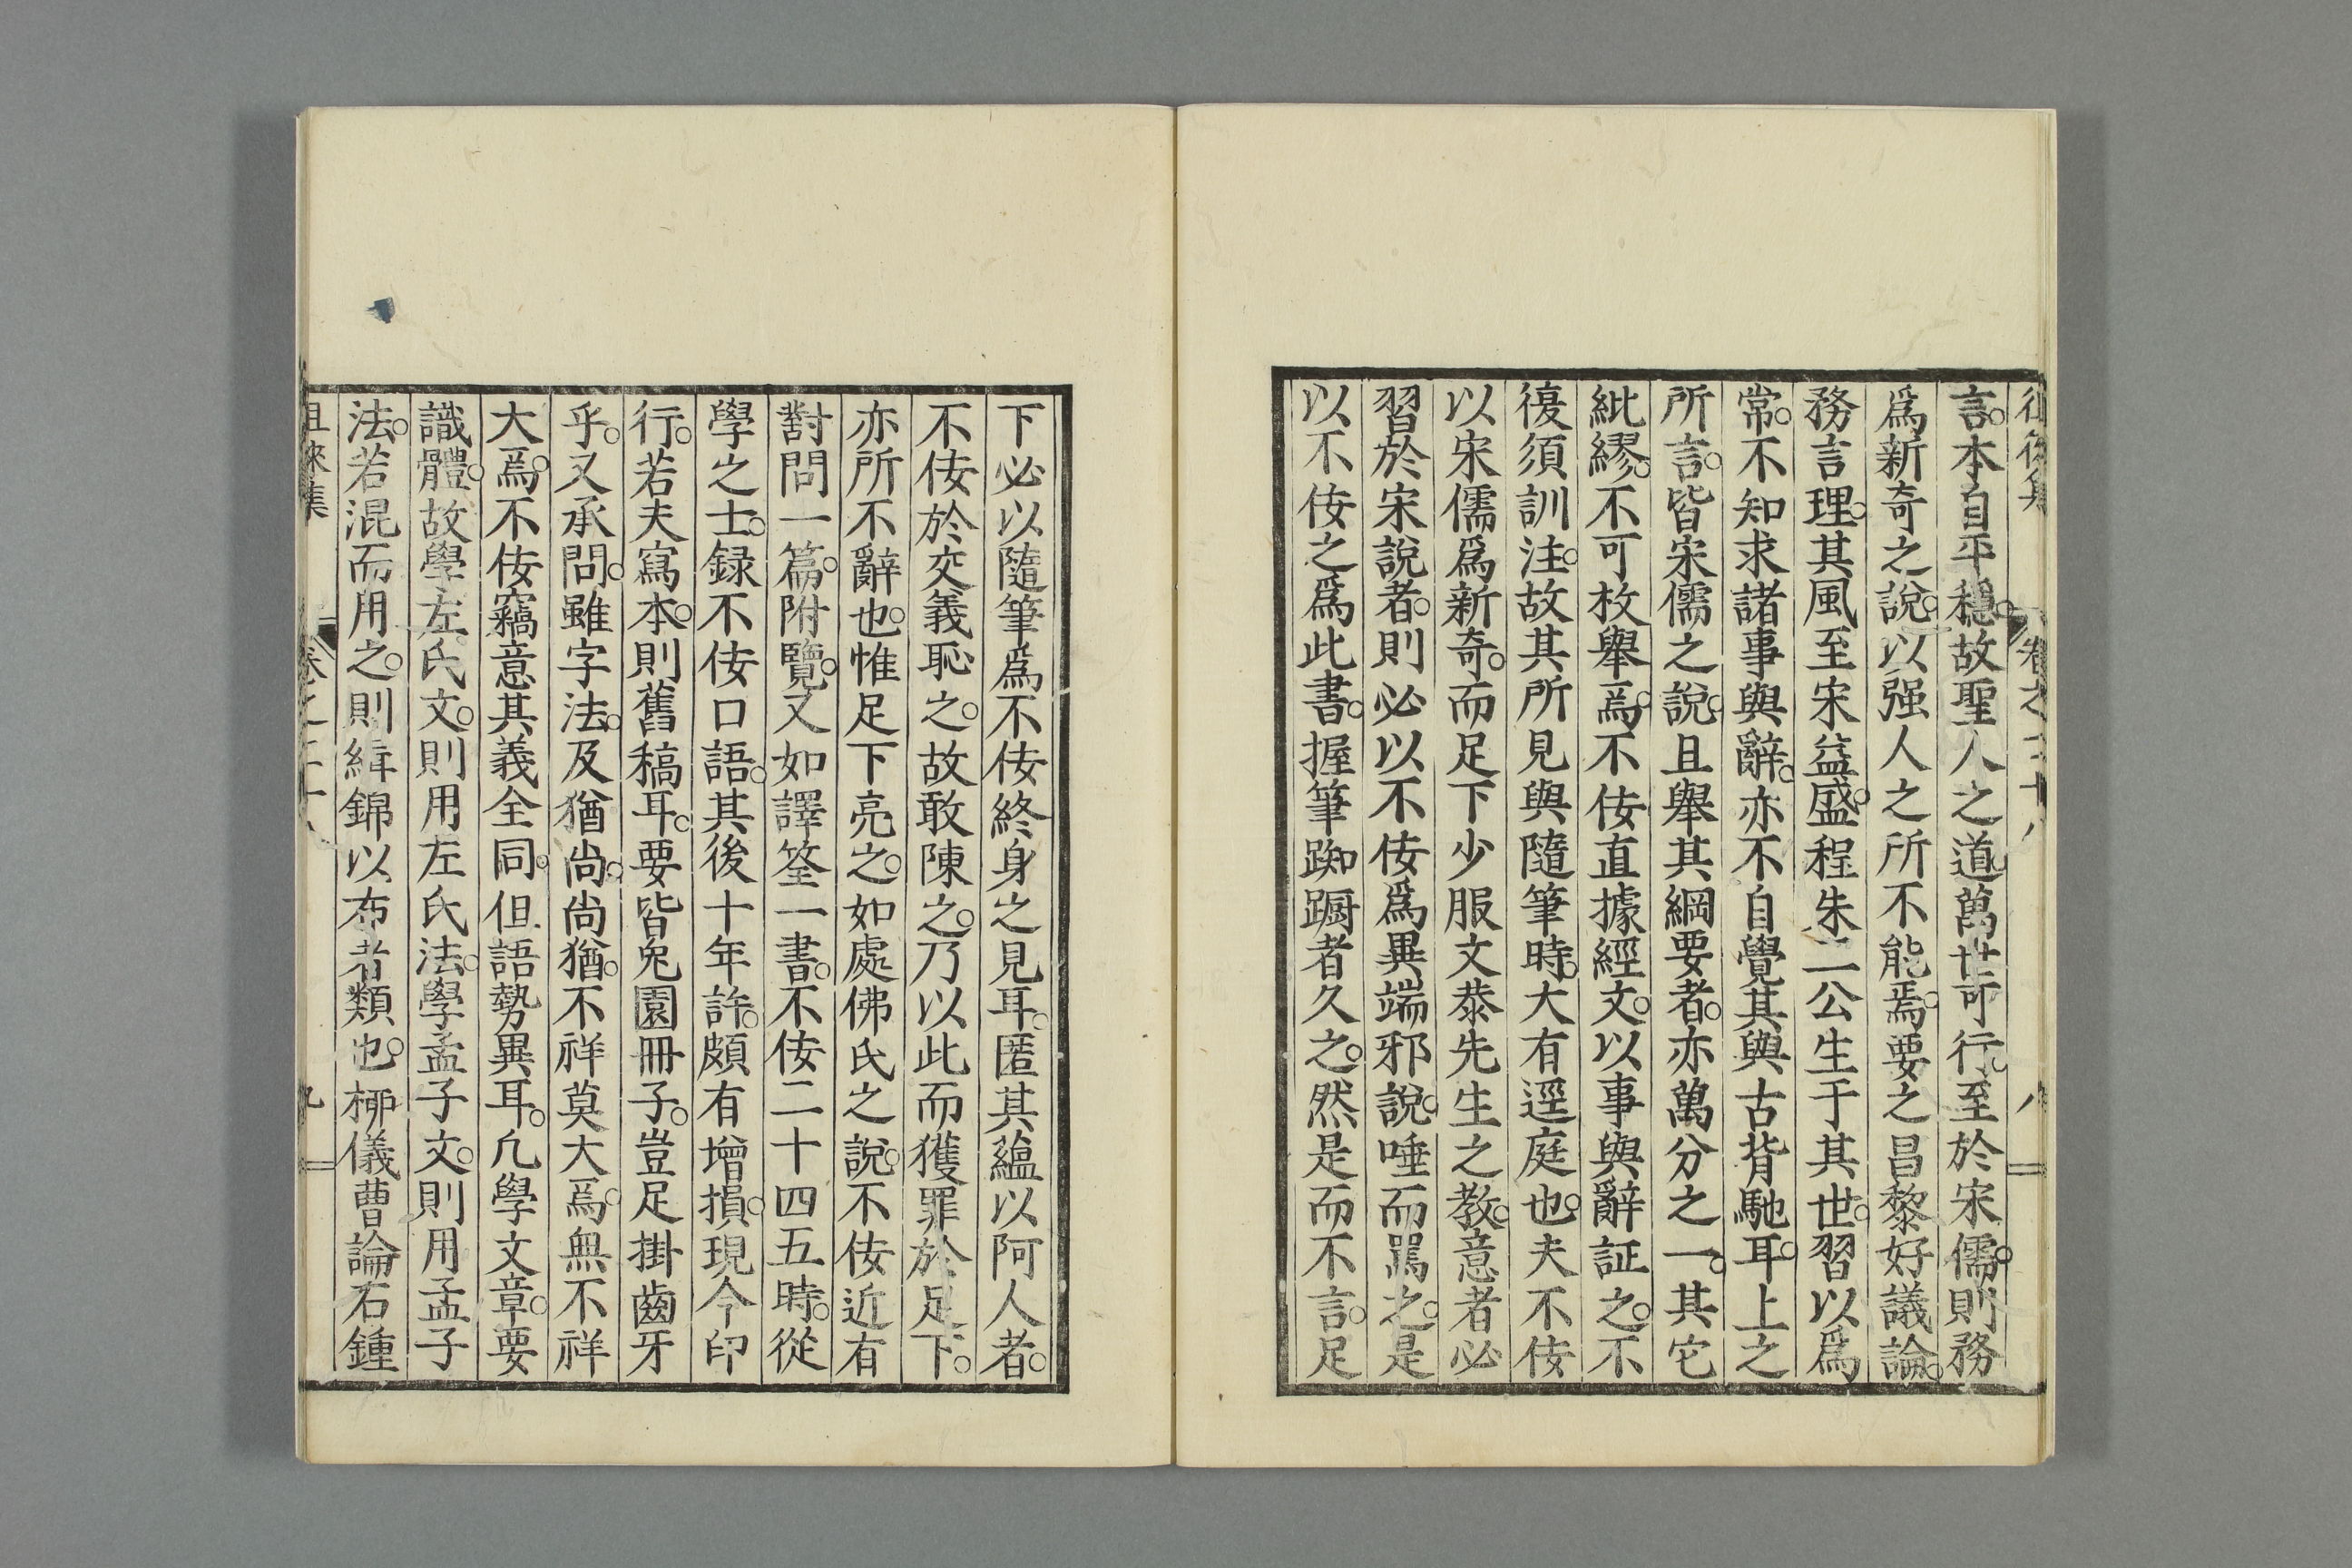 言。本自平穩。故聖人之道。萬世可行。至於宋儒。則務
爲新奇之說。以强人之所不能焉。要之昌黎好議論。
務言理。其風至宋益盛。程朱二公生于其世。習以爲
常。不知求諸事與辭。亦不自覺其與古背馳耳。上之
所言。皆宋儒之說。且舉其綱要者。亦萬分之一。其它
紕繆。不可枚舉焉。不佞直據經文。以事與辭証之。不
復須訓注。故其所見與隨筆時。大有逕庭也。夫不佞
以宋儒爲新奇。而足下少服文恭先生之教。意者必
習於宋說者。則必以不佞爲異端邪說。唾而罵之。是
以不佞之爲此書。握筆踟蹰者久之。然是而不言。足
下必以隨筆爲不佞終身之見耳。匿其蘊以阿人者。
不佞於交義恥之。故敢陳之。乃以此而獲罪於足下。
亦所不辭也。惟足下亮之。如處佛氏之說。不佞近有
對問一篇。附覽。又如譯筌一書。不佞二十四五時。從
學之士。録不佞口語。其後十年許。頗有增損。現今印
行。若夫寫本。則舊稿耳。要皆兔園冊子。豈足掛齒牙
乎。又承問。雖字法。及猶尚。尚猶。不祥莫大焉。無不祥
大焉。不佞竊意其義全同。但語勢異耳。凡學文章。要
識體。故學左氏文。則用左氏法。學孟子文。則用孟子
法。若混而用之。則緝錦以布者類也。柳儀曹論石鍾
徠集
卷之二十八
九